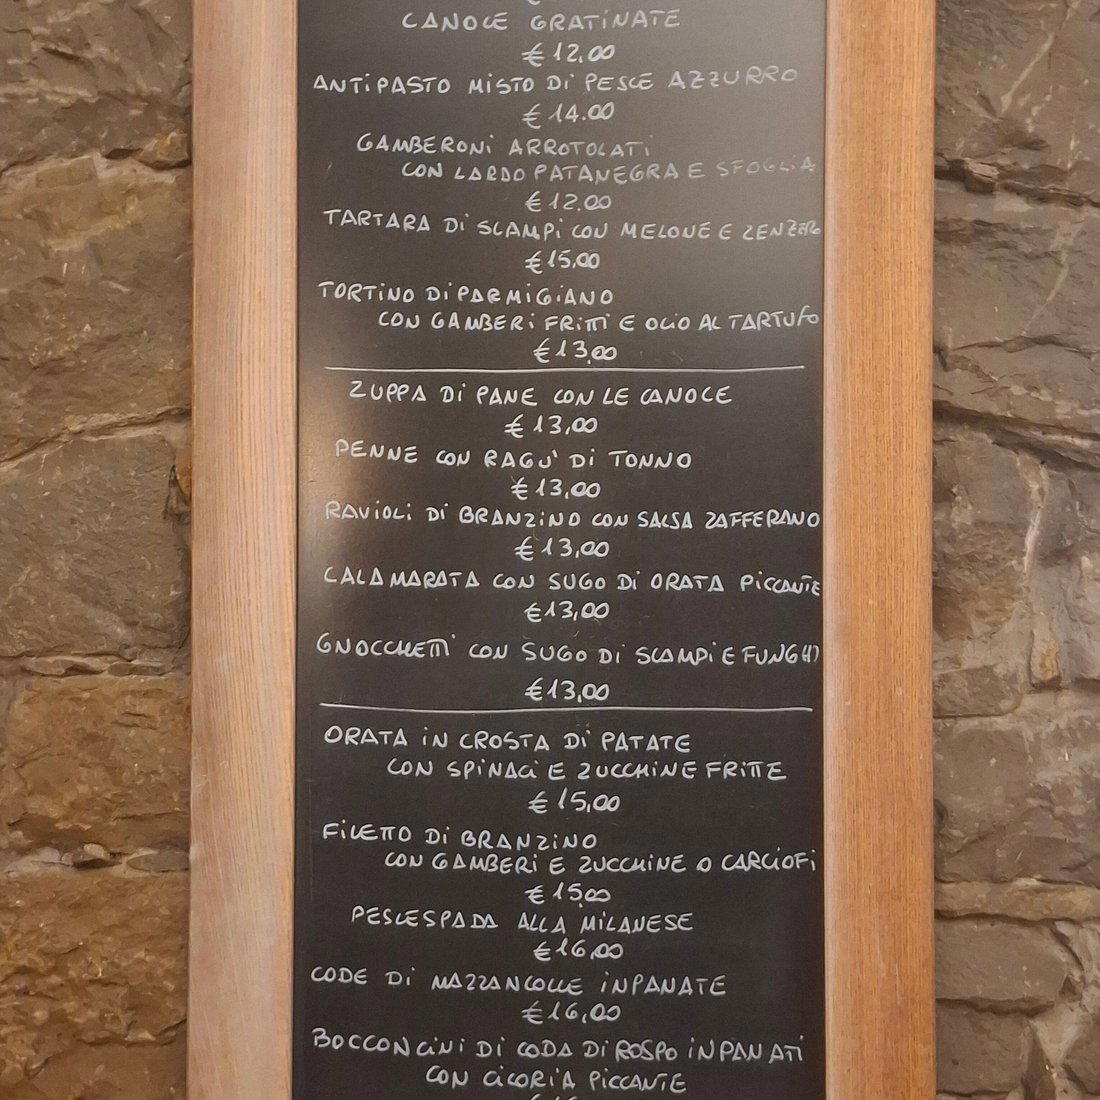 CANOCE GRATINATE
€ 12,00
ANTIPASTO MISTO DI PESCE AZZURRO
€ 14.00
GAMBERONI ARROTOLATI
CON LARDO PATANEGRA E SFOGLIA
€ 12.00
TARTARA DI SCAMPI CON MELONE E ZENZERO
€ 15,00
TORTINO DI PARMIGIANO
CON GAMBERI FRITTI E OLIO AL TARTUFO
€ 13,00
ZUPPA DI PANE CON LE CANOCE
€ 13,00
PENNE CON RAGU' DI TONNO
€ 13,00
RAVIOLI DI BRANZINO CON SALSA ZAFFERANO
€ 13,00
CALAMARATA CON SUGO DI ORATA PICCANTE
€ 13,00
GNOCCHETTI CON SUGO DI SCAMPI E FUNGHI
€ 13,00
ORATA IN CROSTA DI PATATE
CON SPINACI E ZUCCHINE FRITTE
€ 15,00
FILETTO DI BRANZINO
CON GAMBERI E ZUCCHINE O CARCIOFI
€ 15,00
PESCESPADA ALLA MILANESE
€ 16,00
CODE DI MAZZANCOLLE INPANATE
€ 16,00
BOCCONCINI DI CODA DI ROSPO INPANATI
CON CICORIA PICCANTE